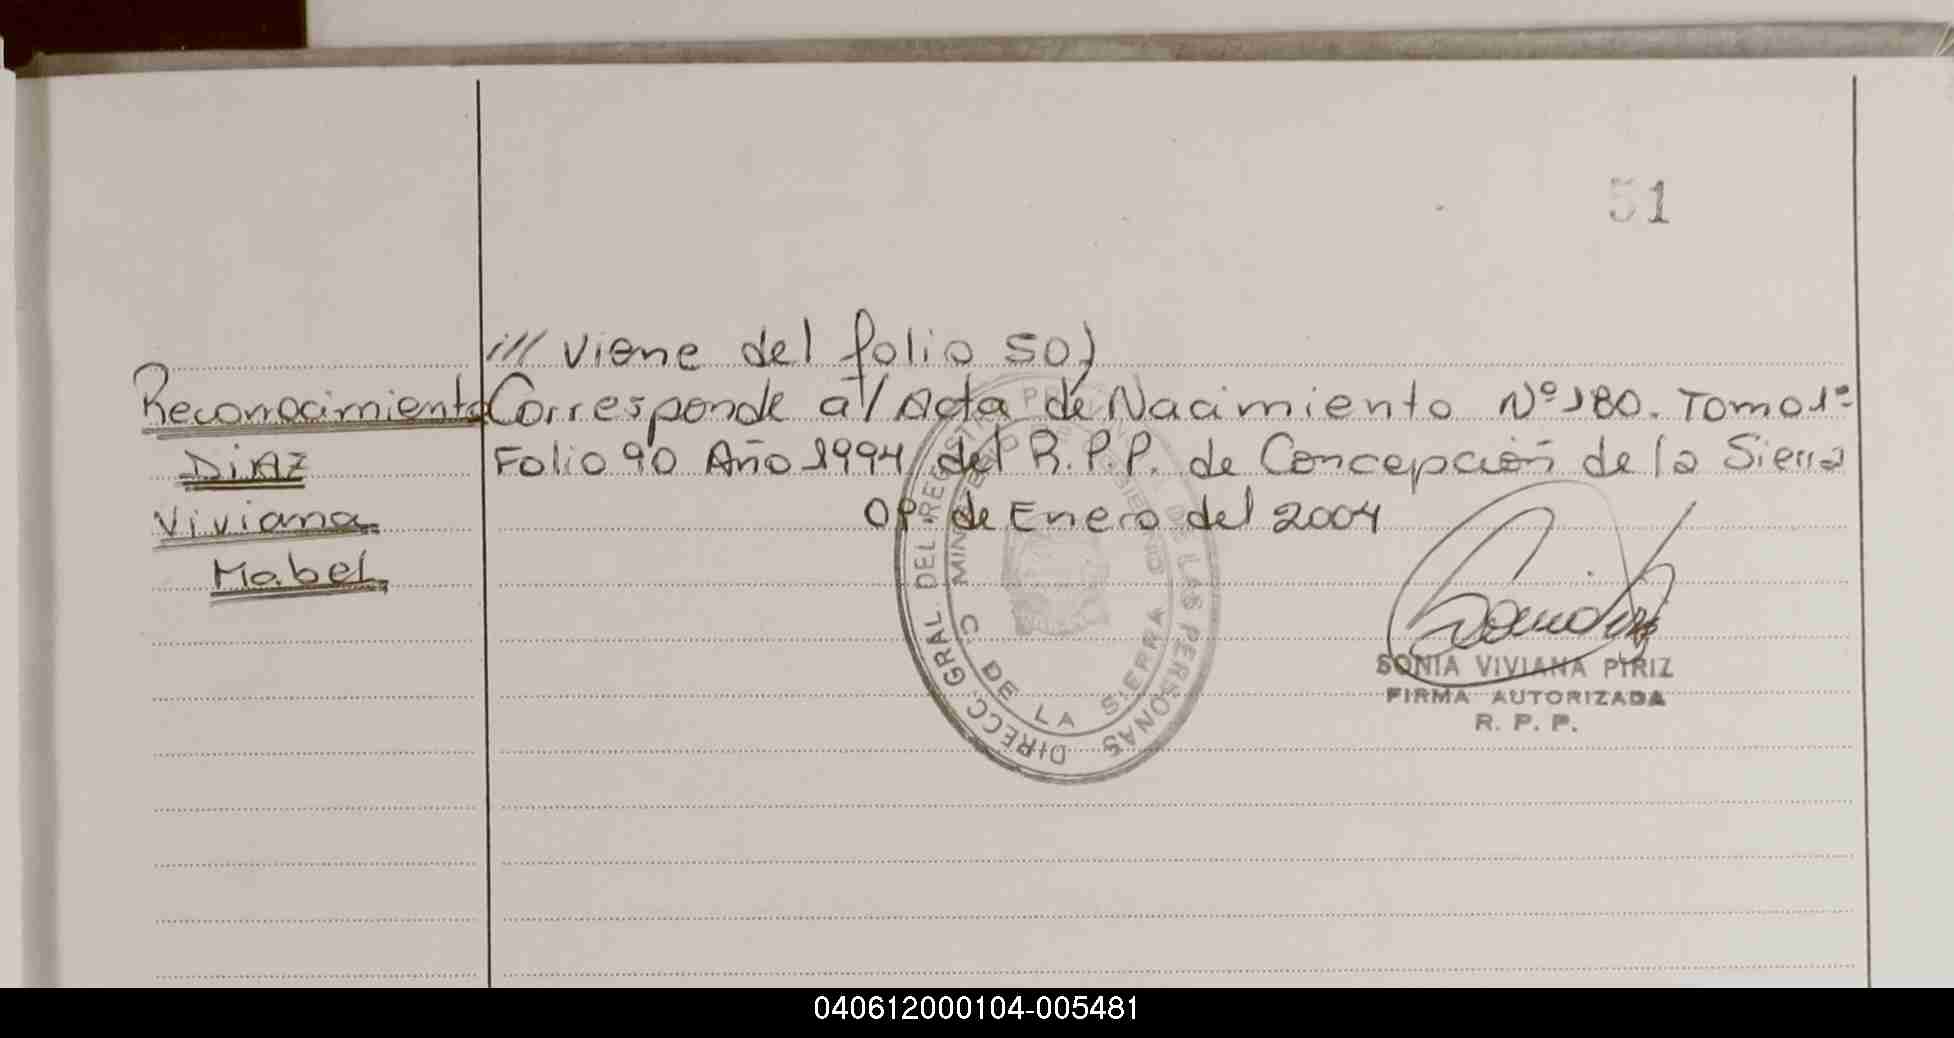 51
/// viene del folio 50)
Reconocimiento
Corresponde al Acta de Nacimiento Nº 180. Tomo 1º
DiAZ
Folio 90 Año 1994 del R.P.P. de Concepción de la Sierra
Viviana
de Enero del 2004
Mabel
SONIA VIVIANA PIRIZ
FIRMA AUTORIZADA
R. P. P.
DIRECC. GRAL. DEL REGISTRO DE LAS PERSONAS
C. DE LA SIERRA
040612000104-005481